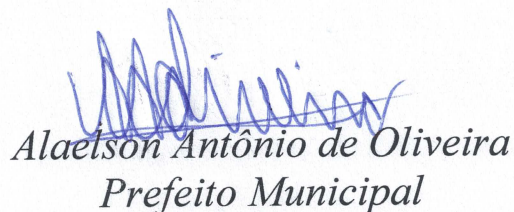 Alaelson Antônio de Oliveira
Prefeito Municipal